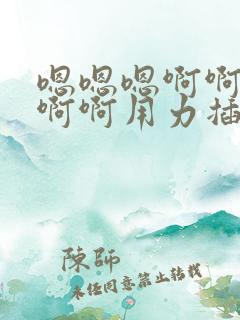 嗯嗯嗯啊啊
啊啊用力插
陳師
未经同意禁止转载